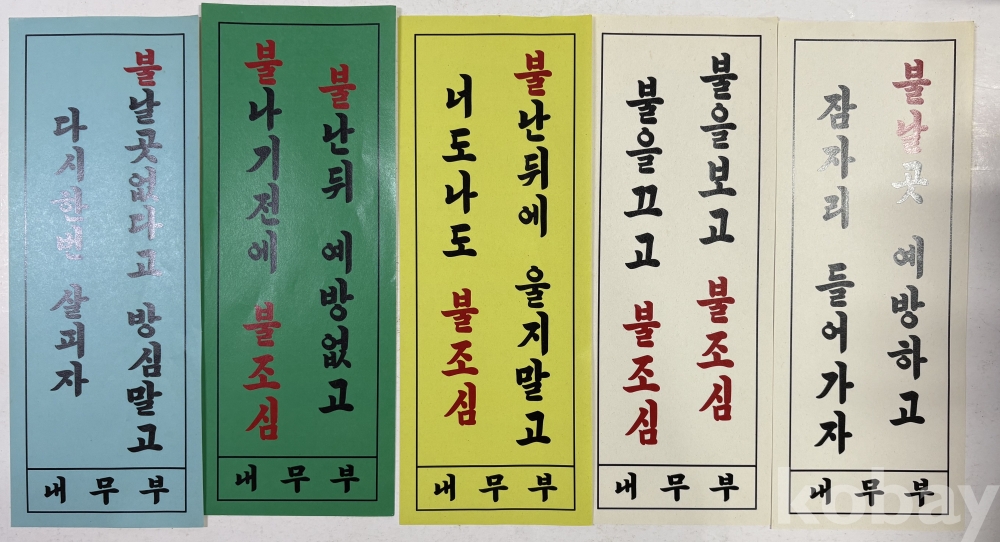 불날곳없다고 방심말고
다시한번 살피자
내무부
불난뒤 예방없고
불나기전에 불조심
내무부
불난뒤에 울지말고
너도나도 불조심
내무부
불을보고 불조심
불을끄고 불조심
내무부
불날곳 예방하고
잠자리 들어가자
내무부
kobay